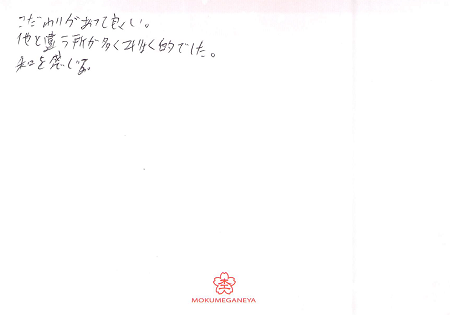 こだわりがあって良い。
他と違う所が多くみりょく的でした。
和を感じる。
杢
MOKUMEGANEYA